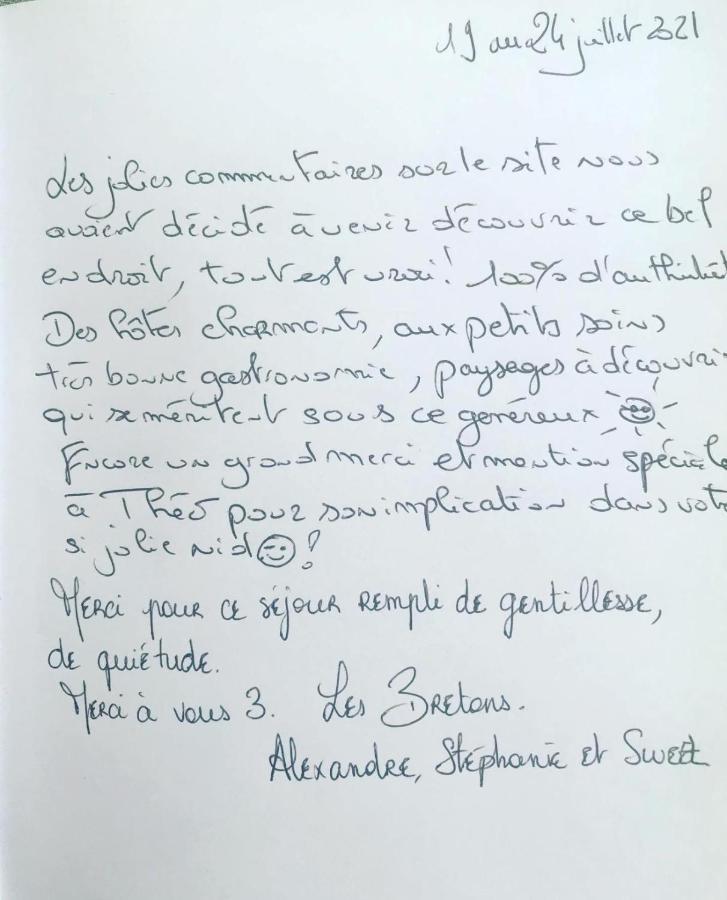 19 au 24 juillet 2021
Les jolies commentaires sur le site nous
avaient décidé à venir découvrir ce bel
endroit, tout est vrai! 100% d'authinticit
Des hôtes charmants, aux petits soins
très bonne gastronomie, paysages à découvri
qui se méritent sous ce généreux
Encore un grand merci et mention spéciale
à Théo pour son implication dans vot
si jolie nid !
Merci pour ce séjour rempli de gentillesse,
de quiétude.
Merci à vous 3. Les Bretons.
Alexandre, Stéphanie et Sweet